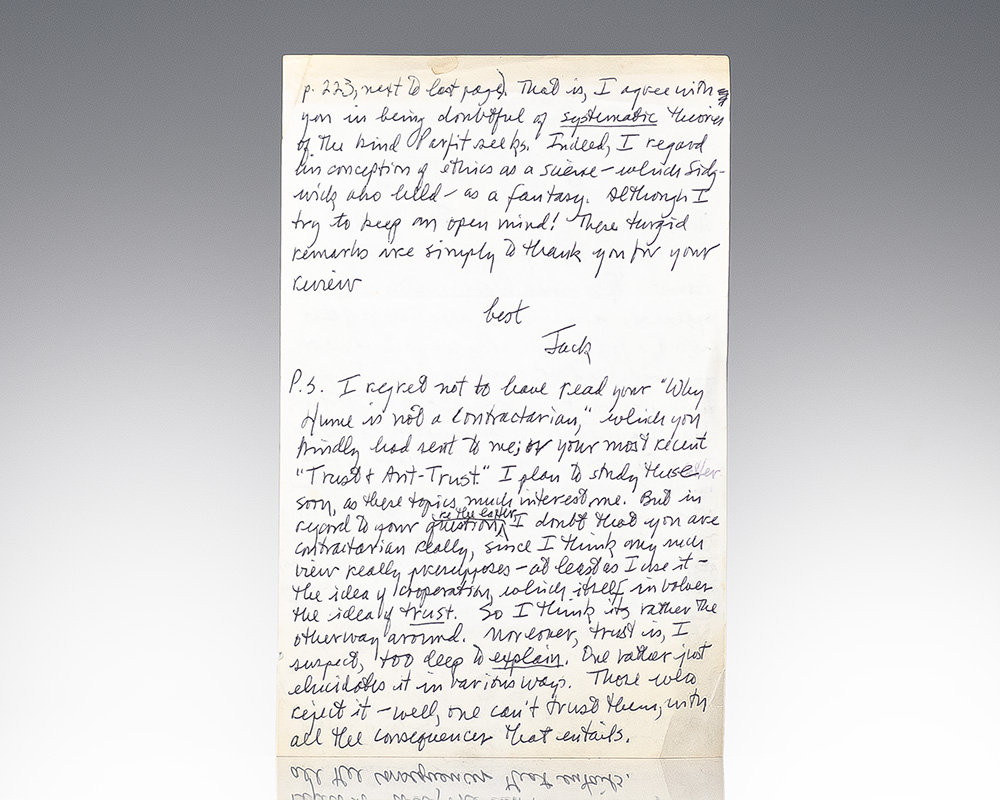 p. 223, next to last page). That is, I agree with
you in being doubtful of systematic theories
of the kind Parfit seeks. Indeed, I regard
his conception of ethics as a science – which Sidg-
wick also held – as a fantasy. Although I
try to keep an open mind! These turgid
remarks are simply to thank you for your
review
best
Jack
P.S. I regret not to have read your "Why
Hume is not a Contractarian," which you
kindly had sent to me; or your most recent
"Trust & Anti-Trust" I plan to study these
soon, as these topics much interest me. But in
re the latter
regard to your question, I doubt that you are
contractarian really, since I think any such
view really presupposes – at least as I use it –
the idea of cooperation, which itself involves
the idea of trust. So I think its rather the
other way around. Moreover, trust is, I
suspect, too deep to explain. One rather just
elucidates it in various ways. Those who
reject it – well, one can't trust them, with
all the consequences that entails.